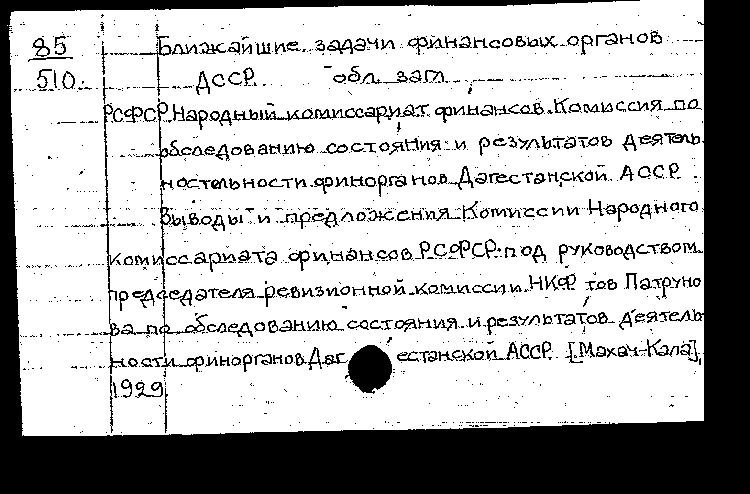 85 Ближайшие задачи финансовых органов
510. ДССР. обл. загл.
РСФСР. Народный комиссариат финансов. Комиссия по
обследованию состояния и результатов деятель
ностельности финорганов Дагестанской АССР.
Выводы и предложения Комиссии Народного
комиссариата финансов РСФСР под руководством
председателя ревизионной комиссии НКФ тов Патруно
ва по обследованию состояния и результатов деятель
ности финорганов Дагестанской АССР. [Махач-Кала],
1929